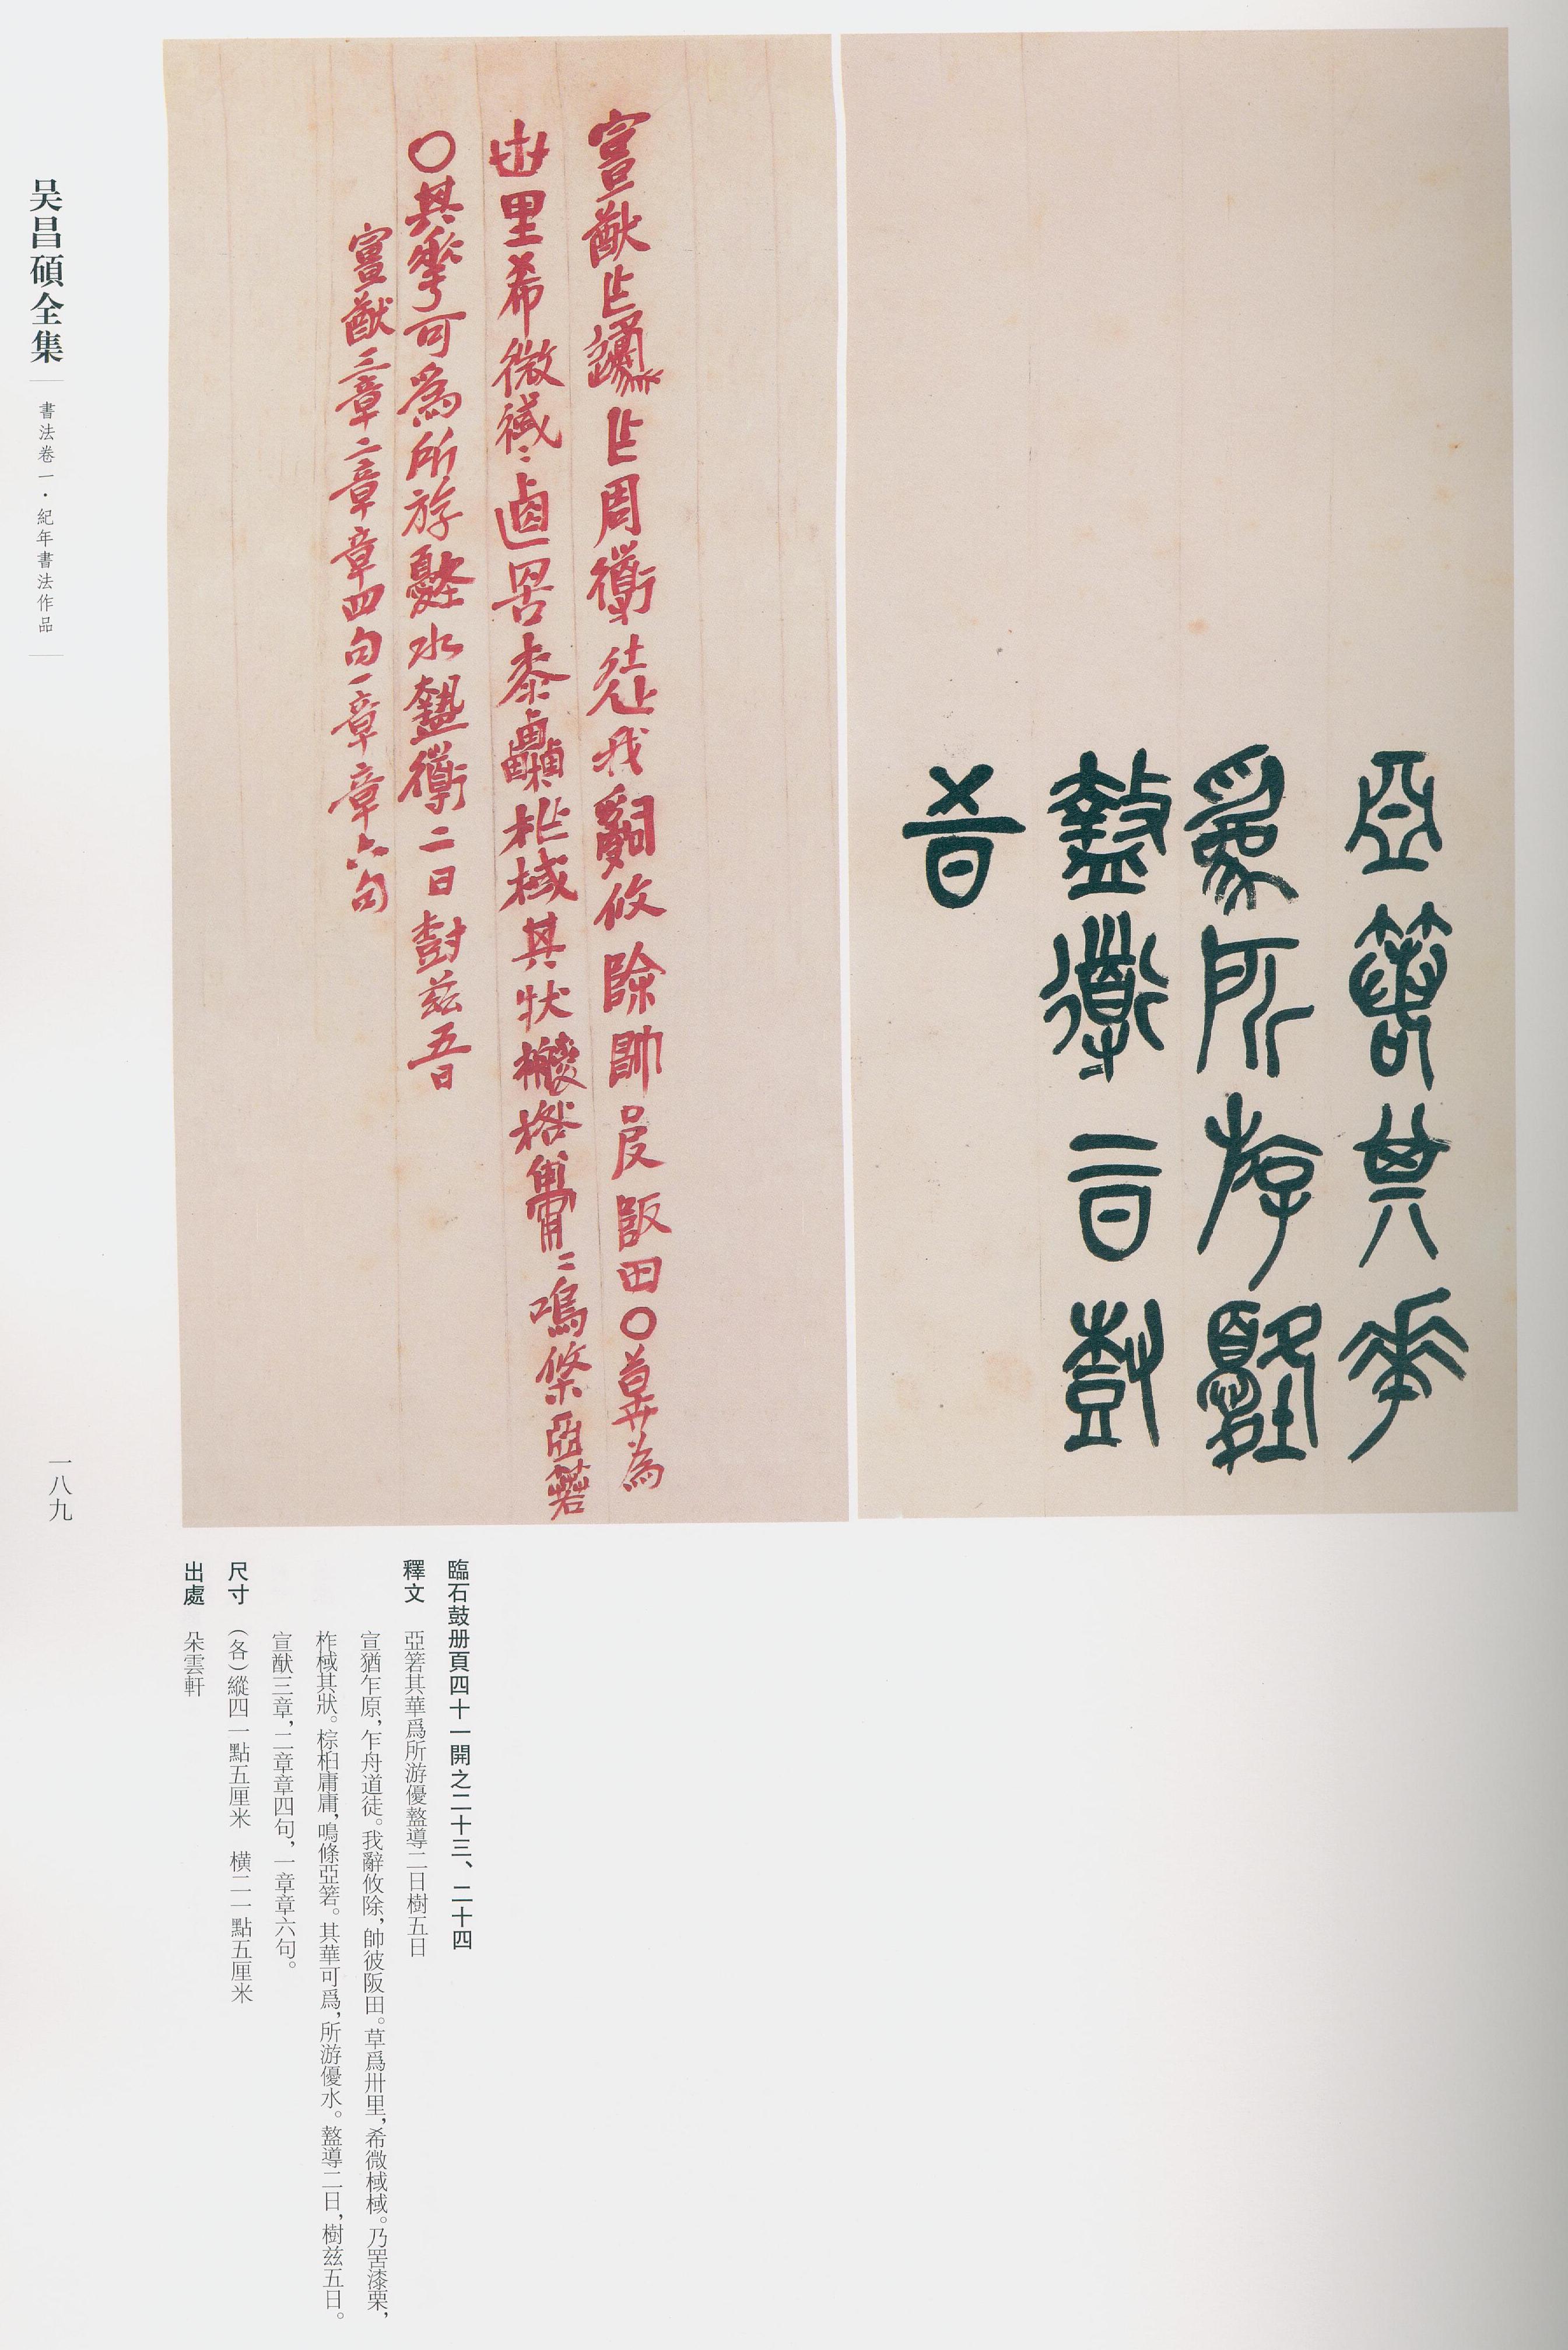 亞箬其華
為所斿優
盩導二日尌
五日
宣猷乍原乍周導徒我辭攸除帥彼阪田〇草為
卅里希微𢧢〻廼罟桼栗柞棫其狀椶格庸〻鳴條亞箬
〇其華可為所斿優水盩導二日尌茲五日
宣猷三章二章章四句一章章六句
臨石鼓册頁四十一開之二十三、二十四
釋文 亞箬其華爲所游優盩導二日樹五日
宣猶乍原，乍舟道徒。我辭攸除，帥彼阪田。草爲卅里，希微棫棫。乃罟漆栗，
柞棫其狀。棕柏庸庸，鳴條亞箬。其華可爲，所游優水。盩導二日，樹兹五日。
宣猷三章，二章章四句，一章章六句。
尺寸 （各）縱四一點五厘米 横二一點五厘米
出處 朵雲軒
吴昌碩全集 書法卷一·紀年書法作品
一八九